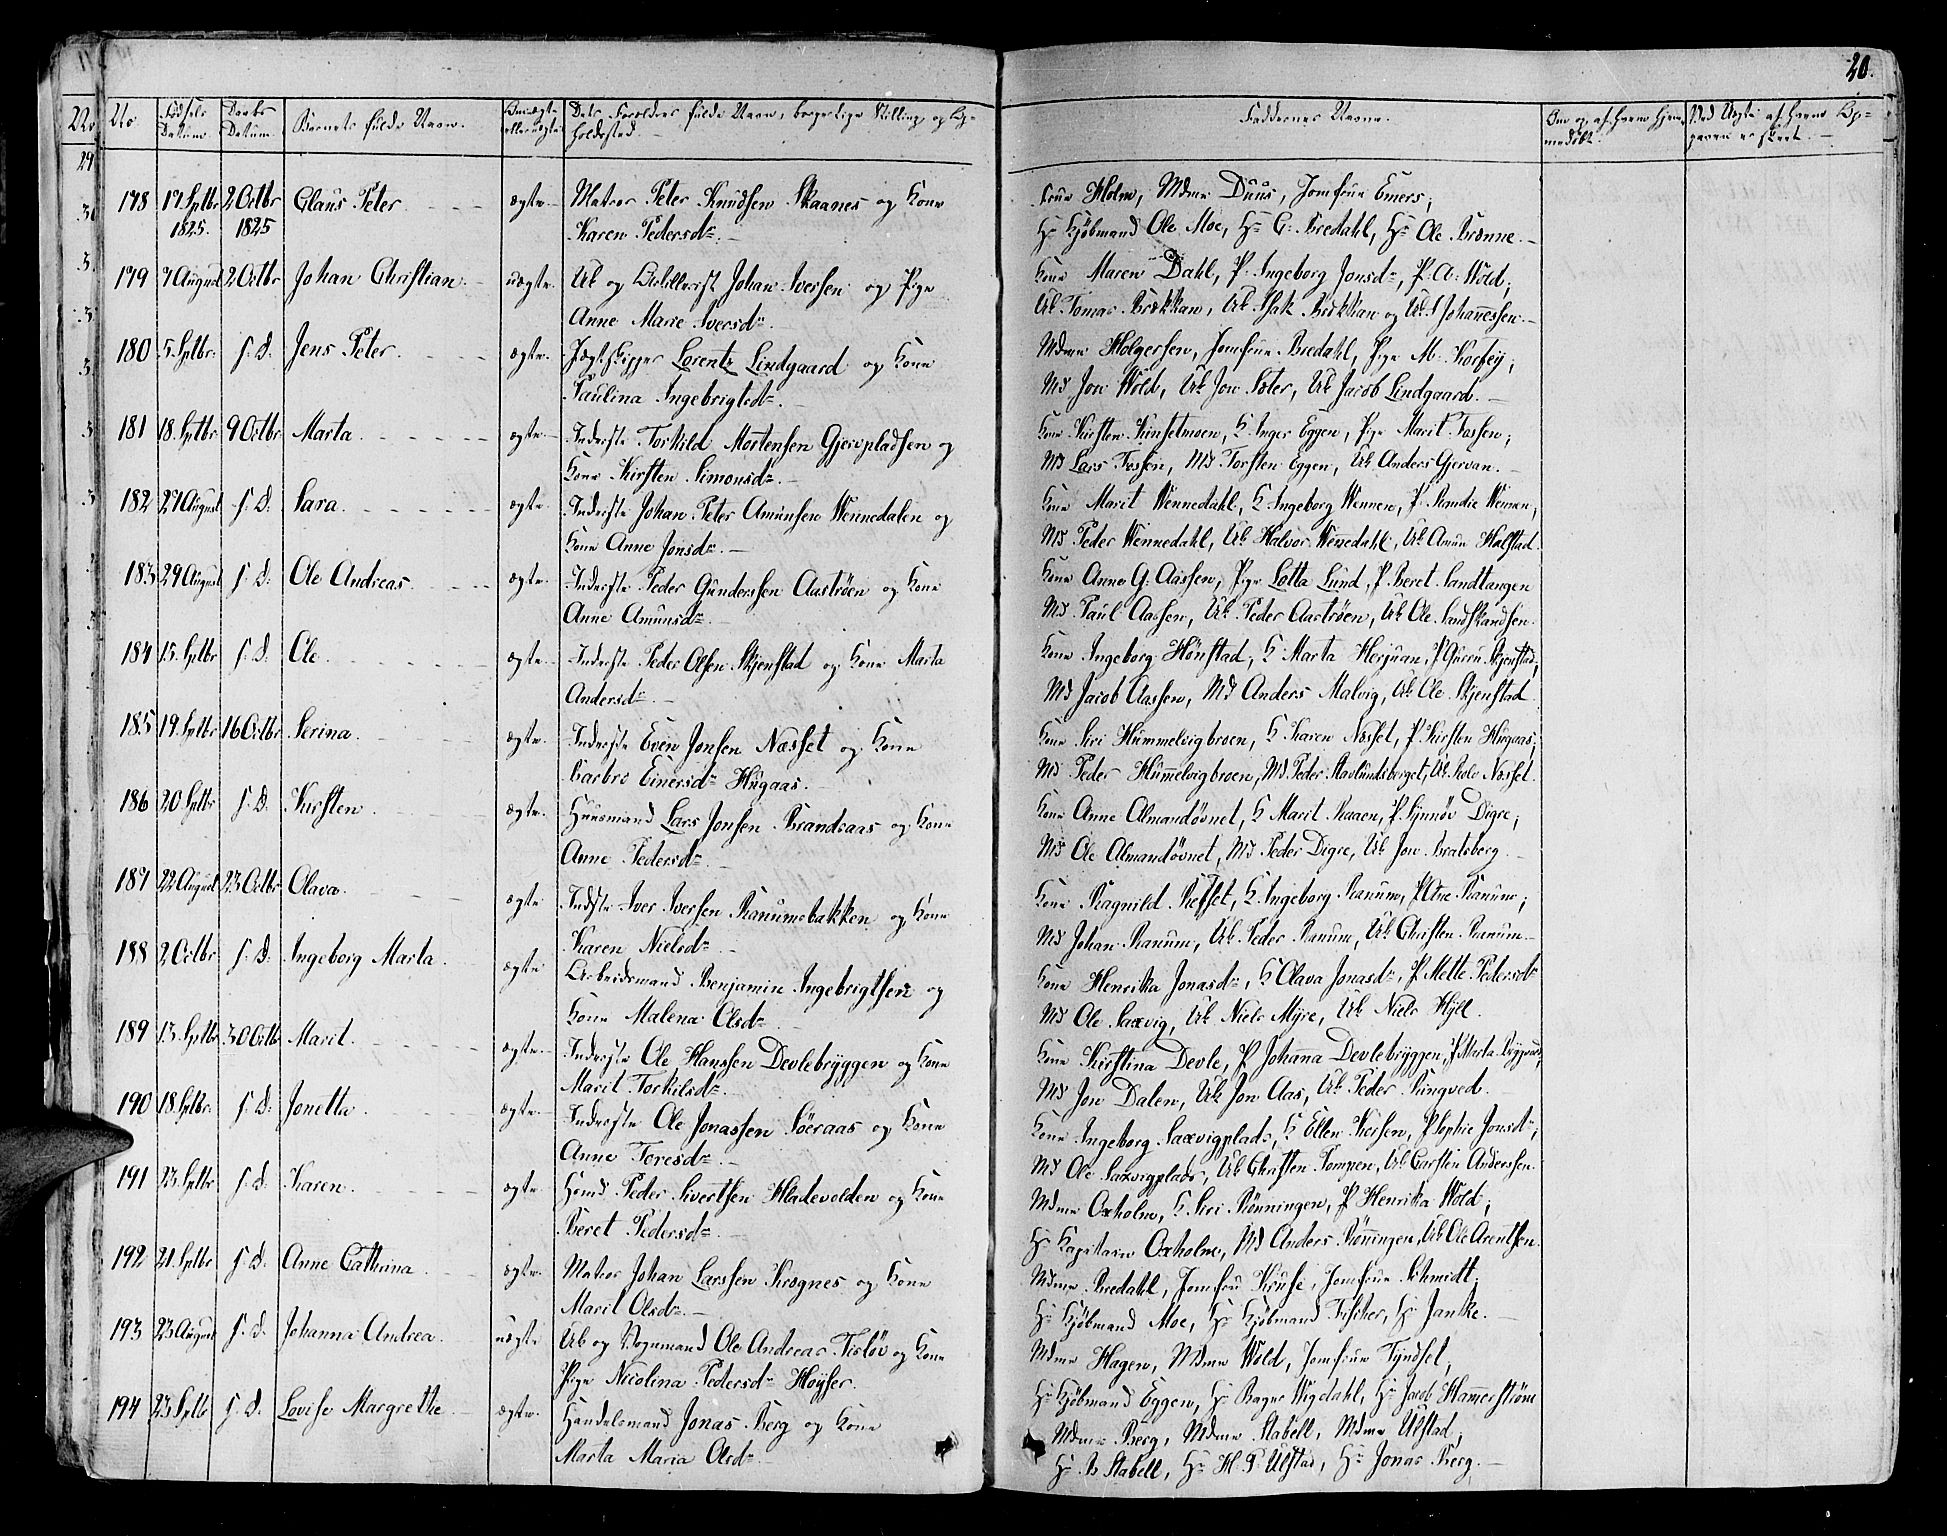 20.
No Fødsels Datum Daabs Datum. Barnets fulde Navn. Om ægte eller uægte Dets Forældres fulde Navn, borgerlige Stilling og Op-
holdssted
Faddernes Navne.
178 17 Sptbr 2 Octbr Claus Peter ægte Matros Peter Knudsen Skaanes og Kone
1825. 1825 Karen Pedersdr.
Frue Holm, Mdme Duus, Jomfrue Emers,
Hr Kjöbmand Ole Moe, Hr G. Bredahl, Hr Ole Brönne.
179 7 August 2 Octbr Johan Christian uægte Uk og Artillerist Johan Iversen og Pige
Anne Marie Iversdr.
Kone Maren Dahl, P. Ingeborg Jonsdr, P. A. Wold;
Uk Tomas Brækkan, Uk Isak Brækkan og Uk I Johannessen.
180 5. Sptbr. s. D. Jens Peter ægte Jægtskipper Lorentz Lindgaard og Kone
Paulina Ingebrigtsdr.
Mdme Holgersen, Jomfrue Bredahl, Pige M. Korsey;
Md Jon Wold, Uk Jon Sæter, Uk Jacob Lindgaard.
181 18. Sptbr 9 Octbr Marta ægte Inderste Torkild Mortensen Gjervpladsen og
Kone Kirsten Simonsdr.
Kone Kirsten Kinselmoen, K. Inger Eggen, Pige Marit Fossen;
Md Lars Fossen, Md Torsten Eggen, Uk Anders Gjervan.
182 27 August s. D. Sara ægte Inderste Johan Peter Amunsen Wennedalen og
Kone Anne Jonsdr.
Kone Marit Wennedahl, K. Ingeborg Wennen, P. Randie Wennen,
Md Peder Wennedahl, Uk Halvor Wennedahl, Uk Amun Halstad
183 29 August s. D. Ole Andreas ægte Inderste Peder Gunderssen Aaströen og Kone
Anne Amunsdr.
Kone Anne G. Aassen, Pige Lotta Lund, P. Beret Sandtangen
Md Paul Aassen, Uk Peder Aaströen, Uk Ole Sandstandsen.
184 15. Sptbr s. D. Ole ægte Inderste Peder Olsen Skjenstad og Kone Marta
Andersdr.
Kone Ingeborg Hönstad, K. Marta Herjuan, P Guru Skjenstad,
Md Jacob Aassen, Md Anders Malvig, Uk Ole Skjenstad
185 19. Sptbr 16 Octbr Serina ægte Inderste Even Jonsen Næsset og Kone
Barbro Einersdr Hugaas.
Kone Siri Hummelvigbroen, K Karen Næsset, P Kirsten Hugaas,
Md Peder Hummelvigbroen, Md Peder Stavlundsberget, Uk Rolv Næsset.
186 20 Sptbr s. D. Kirsten ægte Huusmand Lars Jonsen Brandraas og Kone
Anne Pedersdr.
Kone Anne Almandövnet, K Marit Raaen, P. Synnöv Digre,
Md Ole Almandövnet, Md Peder Digre, Uk Jon Bratsberg.
187 22 August 23 Octbr Olava ægte Indste Iver Iversen Ranumsbakken og Kone
Karen Nielsdr.
Kone Ragnild Refset, K. Ingeborg Ranum, P Ane Ranum,
Md Johan Ranum, Uk Peder Ranum, Uk Christen Ranum
188 2 Octbr s. D. Ingeborg Marta ægte Arbeidsmand Benjamin Ingebrigtsen og
Kone Malena Olsdr.
Kone Henrika Jonasdr, K Olava Jonasdr, P Mette Pedersdr
Md Ole Saxvig, Uk Niels Myre, Uk Niels Hyll.
189 13. Sptbr 30 Octbr Marit ægte Inderste Ole Hanssen Devlebryggen og Kone
Marit Torkilsdr.
Kone Kirstina Devle, P. Johanna Devlebryggen, P Marta
Md Jon Dalen, Uk Jon Aas, Uk Peder Ringved.
190 18. Sptbr. s. D. Jonetta ægte Inderste Ole Jonassen Söeraas og Kone
Anne Toresdr.
Kone Ingeborg Saxvigplads, K Ellen Kersen, P Sophie Jonsdr,
Md Ole Saxvigplads, Uk Christen Pompen, Uk Carsten Anderssen.
191 23. Sptbr s. D. Karen ægte Hmd Peder Sivertsen Hladevolden og Kone
Beret Pedersdr.
Mdme Oxholm, K. Siri Rönningen, P Henrika Wold;
Hr Kapitain Oxholm, Md Anders Rönningen, Uk Ole Arentsen.
192 21. Sptbr s. D. Anne Cathrina ægte Matros Johan Larssen Krognes og Kone
Marit Olsdr.
Mdme Bredahl, Jomfru Kruse, Jomfrue Schmidt,
Hr Kjöbmand Moe, Hr Kjöbmand Fischer, Hr Janke.
193 23 August s. D. Johanna Andrea uægte Uk og Vognmand Ole Andreas Tislöv og Kone
Pige Nicolina Pedersdr Höyser.
Mdme Hagen, Mdme Wold, Jomfrue Tyndsel,
Hr Kjöbmand Eggen, Hr Bager Wigdahl, Hr Jacob Hammerström
194 23 Sptbr s. D. Lovise Margrethe ægte Handelsmand Jonas Berg og Kone
Marta Maria Olsdr.
Mdme Berg, Mdme Stabell, Mdme Ulstad,
Hr B Stabell, Hr H. P Ulstad, Hr Jonas Berg.